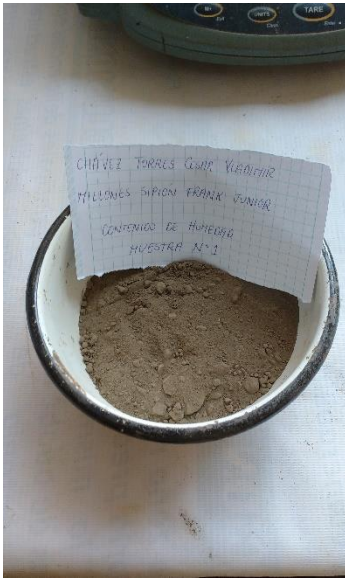 UNITS
TARE
CHÁVEZ TORRES CESAR VLADIMIR
MILLONES SIPION FRANK JUNIOR
CONTENIDO DE HUMEDAD
MUESTRA N°1